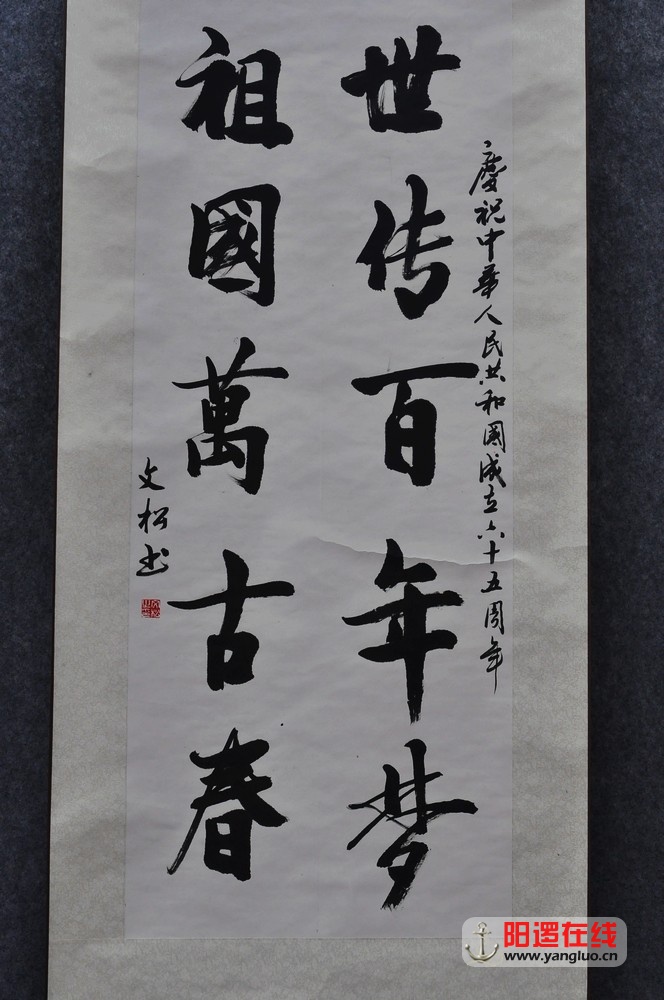 慶祝中华人民共和國成立六十五周年
世传百年梦
祖國萬古春
文松书
阳逻在线
www.yangluo.cn